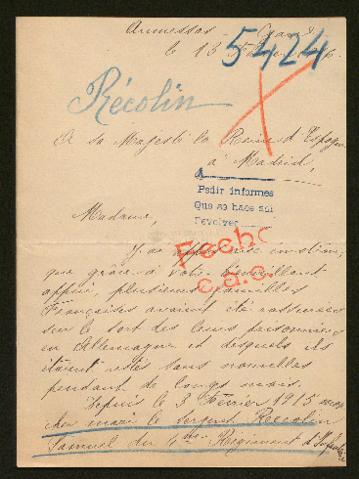 Aumessas Gard
le 13
5424
Récolin
A sa Majesté la Reine d'Espagne
à Madrid,
A
Pedir informes
Que se hace así
Devolver
Madame,
Fecho
que grâce à votre bienveillant
appui, plusieurs familles
Françaises avaient été rassurées
sur le sort des leurs prisonniers
en Allemagne et desquels ils
étaient restés sans nouvelles
pendant de longs mois.
Depuis le 3 Février 1915 mon
cher mari le sergent Récolin
Samuel du 4me Régiment d'Infanterie